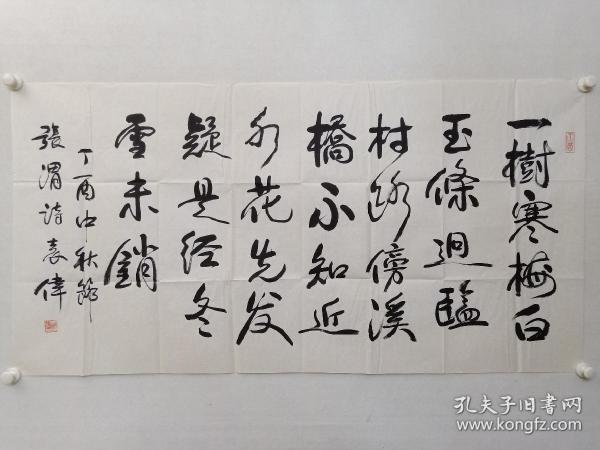 一樹寒梅白
玉條迥臨
村路傍溪
橋不知近
水花先发
疑是经冬
雪未銷
丁酉中秋節
張渭詩袁偉
孔夫子旧书网
www.kongfz.com